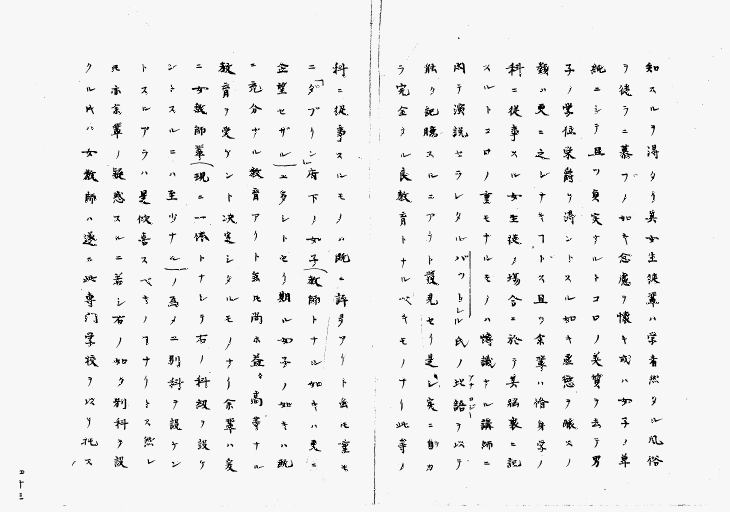 知スルヲ得タリ其女生徒輩ハ学者然タル風俗
ヲ徒ラニ慕フノ如キ念慮ヲ懐キ或ハ女子ノ単
純ニシテ且ツ真実ナルトコロノ美質ヲ去テ男
子ノ学位栄爵ヲ得ントスル如キ虚
類ハ更ニ之レナキ且ツ余輩ハ修身学ノ
科ニ従事スル女生徒ノ場合ニ於テ其脳裏ニ記
スルトコロノ重モナルモノハ博識ナル講師ニ
因テ演説セラレタルバットレル氏ノ此語ヲ以テ
能ク記臆スルニアリト発見セリ是レ実ニ自カ
ラ完全タル良教育トナルベキモノナリ此等ノ
科ニ従事スルモノハ既ニ許多アリト雖モ重モ
ニ「ダブリン」府下ノ女子(教師トナル如キハ更ニ
企望セザル)ニ多シトセリ期ル女子ノ如キハ既
ニ充分ナル教育アリト雖モ尚ホ益々高等ナル
教育ヲ受ケント決定シタルモノナリ余輩ハ爰
ニ女教師輩(現ニ一体トナレル右ノ科級ヲ設ケ
ントスルニハ至少ナル)ノ為メニ別科ヲ設ケン
トスルアラハ是欣喜スベキノナリトス然レ
ル亦余輩ノ疑惑スルニ若シ右ノ如ク別科ヲ設
クル氏ハ女教師ハ遂ニ此専門学校ヲ以リ托ス
四十三